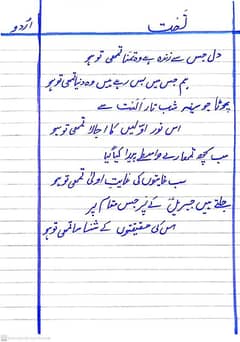 اردو
نعت
دل جس سے زندہ ہے وہ تمنا تمھی تو ہو
ہم جس میں بس رہے ہیں وہ دنیا تمھی تو ہو
پھوٹا جو سینہ شب تار الست سے
اس نور اولیں کا اجالا تمھی تو ہو
سب کچھ تمھارے واسطے پیدا کیا گیا
سب غایتوں کی غایت اولیٰ تمھی تو ہو
جلتے ہیں جبریل کے پر جس مقام پر
اس کی حقیقتوں کے شناسا تمھی تو ہو